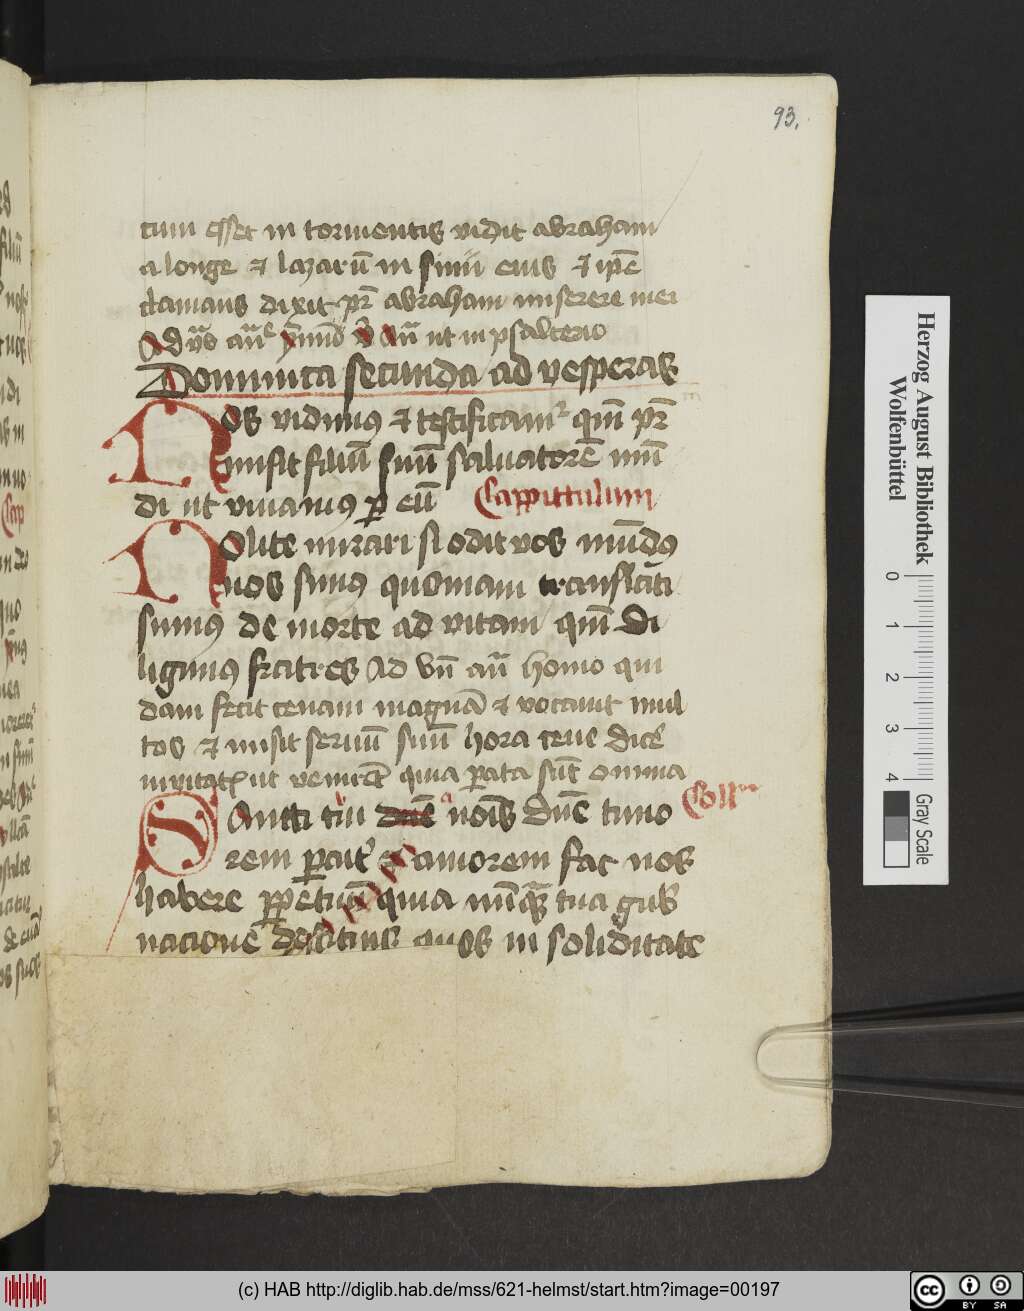 93.
cum esset in tormentis vidit abraham
a longe et lazarū in sinu eius et ip̄e
clamans dixit pr̄ abraham miserere mei
Ad ān ut in psalterio
Dominica secunda ad vesperas
Nos vidimus et testificamr qm̄ pr̄
misit filiū suū saluatorē mū
di ut viuamus p eū Cappittulum
Nolite mirari si odit vos mūdus
nos simus quoniam translati
sumus de morte ad vitam qm̄ di
ligimus fratres Ad homo qui
dam fecit cenam magnā et vocauit mul
tos et misit seruū suū hora cene dicē
inuitatis ut venirēt quia parata sūt omnia
Sancti tui noīs dn̄e timo Coll
rem parit et amorem fac nos
habere ppetuū quia nūq̄ tua gub
nacione quos in soliditate
Herzog August Bibliothek
Wolfenbüttel
0 1 2 3 4
Gray Scale
(c) HAB http://diglib.hab.de/mss/621-helmst/start.htm?image=00197
cc BY SA